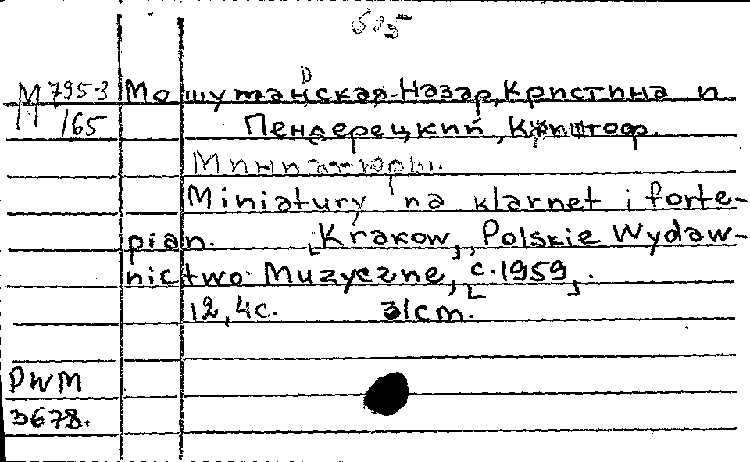 585
М 795-3 Мошуманская-Назар, Кристина и
165 Пендерецкий, Кшиштоф.
Миниатюры.
Miniatury na klarnet i forte-
pian. [Krakow], Polskie Wydaw-
nictwo Muzyczne, [c.1959].
12, 4c. 31cm.
PWM
3678.